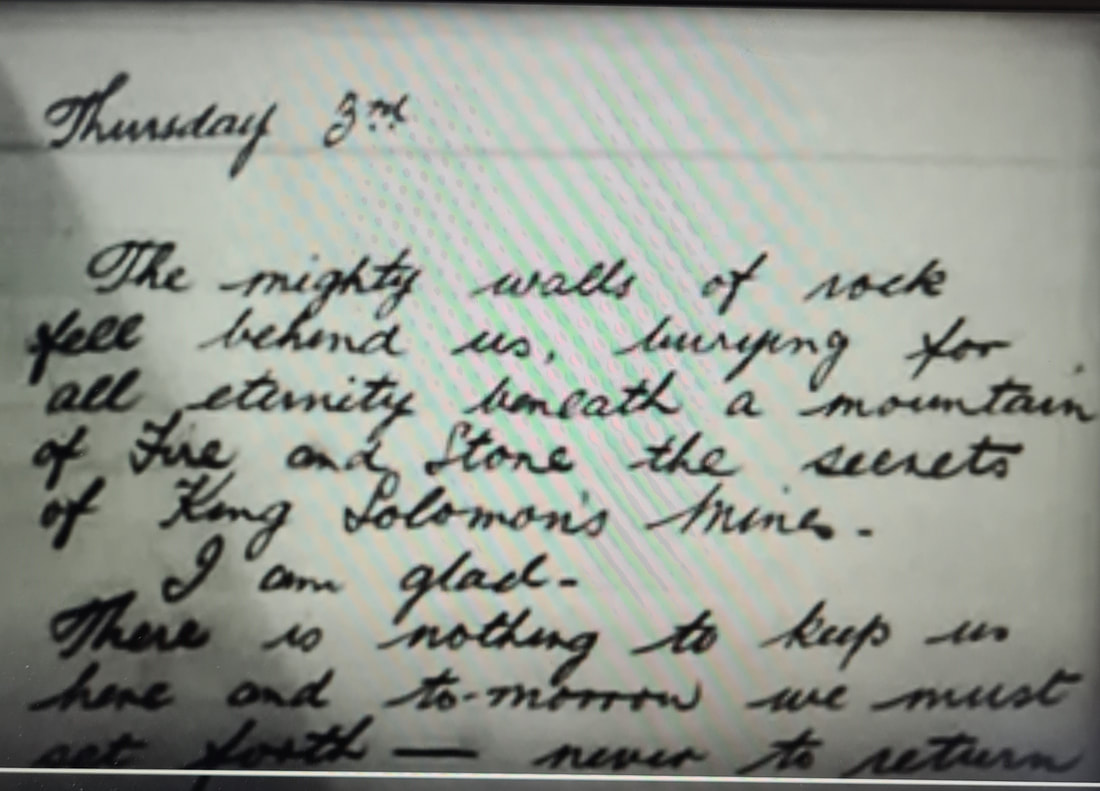 Thursday 3rd
The mighty walls of rock
fell behind us, burying for
all eternity beneath a mountain
of Fire and Stone the secrets
of King Solomon's Mines.
I am glad-
There is nothing to keep us
here and to-morrow we must
set forth — never to return